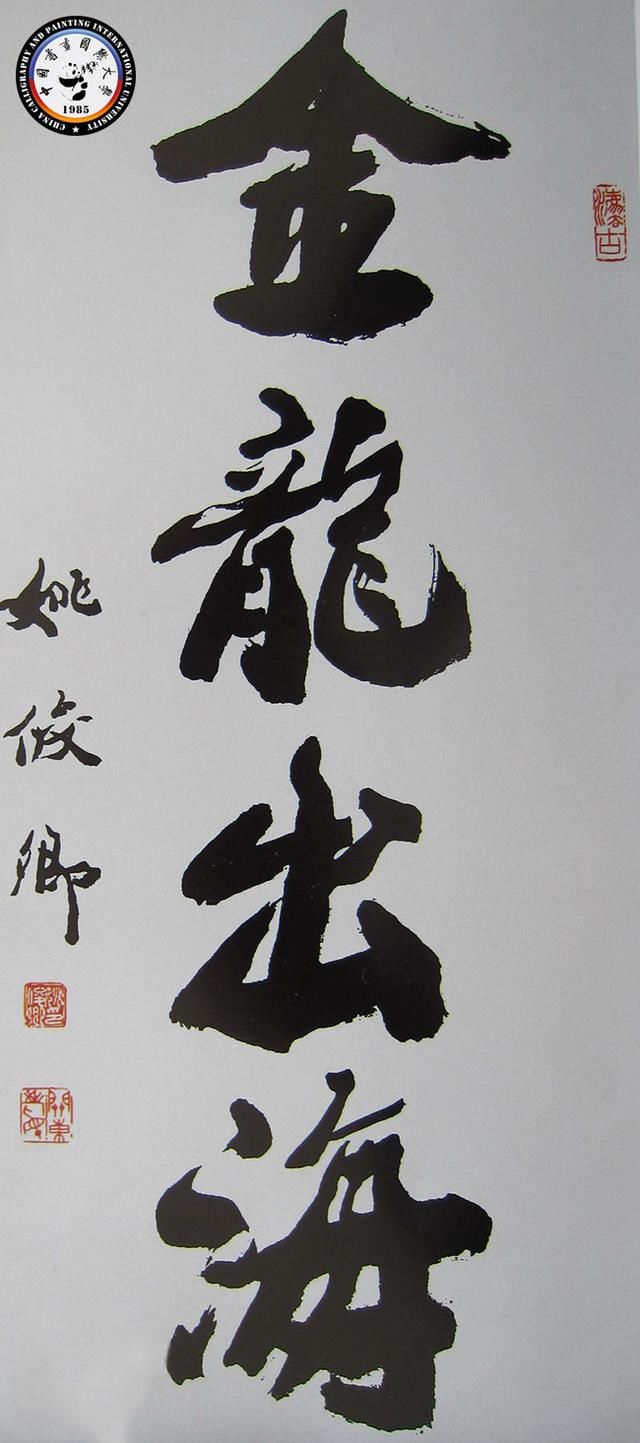 金龍出海
姚俊卿
CHINA CALLIGRAPHY AND PAINTING INTERNATIONAL UNIVERSITY
中國書畫國際大學
1985